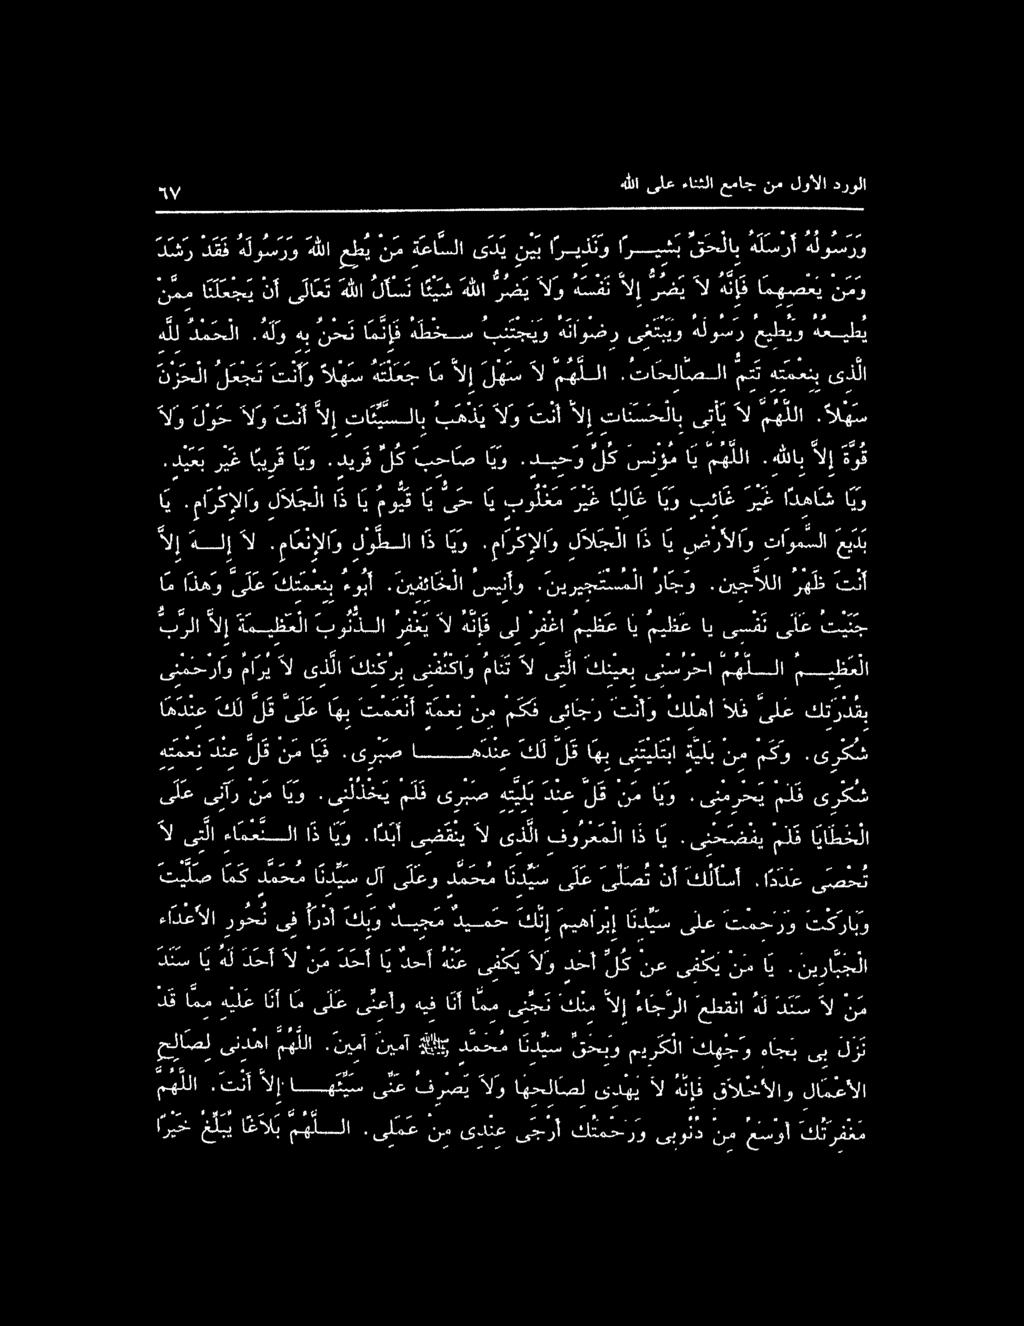 الورد الأول من جامع الثناء على الله ٦٧
وَرَسُولُهُ أَرْسَلَهُ بِالْحَقِّ بَشِيــرًا وَنَذِيـرًا بَيْنَ يَدَى السَّاعَةِ مَنْ يُطِعِ اللهَ وَرَسُولَهُ فَقَدْ رَشَدَ
وَمَنْ يَعْصِهِمَا فَإِنَّهُ لاَ يَضُرُّ إِلاَّ نَفْسَهُ وَلاَ يَضُرُّ اللهَ شَيْئًا نَسْأَلُ اللهَ تَعَالَى أَنْ يَجْعَلَنَا مِمَّنْ
يُطِيـعُهُ وَيُطِيعُ رَسُولَهُ وَيَبْتَغِى رِضْوَانَهُ وَيَجْتَنِبُ سَـخَطَهُ فَإِنَّمَا نَحْنُ بِهِ وَلَهُ. الْحَمْدُ لِلَّهِ
الَّذِى بِنِعْمَتِهِ تَتِمُّ الـصَّالِحَاتُ. الـلَّهُمَّ لاَ سَهْلَ إِلاَّ مَا جَعَلْتَهُ سَهْلاً وَأَنْتَ تَجْعَلُ الْحَزْنَ
سَهْلاً. اللَّهُمَّ لاَ يَأْتِى بِالْحَسَنَاتِ إِلاَّ أَنْتَ وَلاَ يَذْهَبُ بِالـسَّيِّئَاتِ إِلاَّ أَنْتَ وَلاَ حَوْلَ وَلاَ
قُوَّةَ إِلاَّ بِاللهِ. اللَّهُمَّ يَا مُؤْنِسَ كُلِّ وَحِيـدٍ. وَيَا صَاحِبَ كُلِّ فَرِيدٍ. وَيَا قَرِيبًا غَيْرَ بَعِيدٍ.
وَيَا شَاهِدًا غَيْرَ غَائِبٍ وَيَا غَالِبًا غَيْرَ مَغْلُوبٍ يَا حَىُّ يَا قَيُّومُ يَا ذَا الْجَلاَلِ وَالإِكْرَامِ. يَا
بَدِيعَ السَّمَوَاتِ وَالأَرْضِ يَا ذَا الْجَلاَلِ وَالإِكْرَامِ. وَيَا ذَا الـطَّوْلِ وَالإِنْعَامِ. لاَ إِلـهَ إِلاَّ
أَنْتَ ظَهْرُ اللاَّجِينَ. وَجَارُ الْمُسْتَجِيرِينَ. وَأَنِيسُ الْخَائِفِينَ. أَبُوءُ بِنِعْمَتِكَ عَلَىَّ وَهذَا مَا
جَنَيْتُ عَلَى نَفْسِى يَا عَظِيمُ يَا عَظِيمُ اغْفِرْ لِى فَإِنَّهُ لاَ يَغْفِرُ الـذُّنُوبَ الْعَظِيـمَةَ إِلاَّ الرَّبُّ
الْعَظِيــمُ الــلَّهُمَّ احْرُسْنِى بِعَيْنِكَ الَّتِى لاَ تَنَامُ وَاكْنُفْنِى بِرُكْنِكَ الَّذِى لاَ يُرَامُ وَارْحَمْنِى
بِقُدْرَتِكَ عَلَىَّ فَلاَ أَهْلِكُ وَأَنْتَ رَجَائِى فَكَمْ مِنْ نِعْمَةٍ أَنْعَمْتَ بِهَا عَلَىَّ قَلَّ لَكَ عِنْدَهَا
شُكْرِى. وَكَمْ مِنْ بَلِيَّةٍ ابْتَلَيْتَنِى بِهَا قَلَّ لَكَ عِنْدَهَــا صَبْرِى. فَيَا مَنْ قَلَّ عِنْدَ نِعْمَتِهِ
شُكْرِى فَلَمْ يَحْرِمْنِى. وَيَا مَنْ قَلَّ عِنْدَ بَلِيَّتِهِ صَبْرِى فَلَمْ يَخْذُلْنِى. وَيَا مَنْ رَآنِى عَلَى
الْخَطَايَا فَلَمْ يَفْضَحْنِى. يَا ذَا الْمَعْرُوفِ الَّذِى لاَ يَنْقَضِى أَبَدًا. وَيَا ذَا الــنَّعْمَاءِ الَّتِى لاَ
تُحْصَى عَدَدًا. أَسْأَلُكَ أَنْ تُصَلِّىَ عَلَى سَيِّدِنَا مُحَمَّدٍ وَعَلَى آلِ سَيِّدِنَا مُحَمَّدٍ كَمَا صَلَّيْتَ
وَبَارَكْتَ وَرَحِمْتَ عَلَى سَيِّدِنَا إِبْرَاهِيمَ إِنَّكَ حَمِـيدٌ مَجِيـدٌ وَبِكَ أَدْرَأُ فِى نُحُورِ الأَعْدَاءِ
الْجَبَّارِينَ. يَا مَنْ يَكْفِى عَنْ كُلِّ أَحَدٍ وَلاَ يَكْفِى عَنْهُ أَحَدٌ يَا أَحَدَ مَنْ لاَ أَحَدَ لَهُ يَا سَنَدَ
مَنْ لاَ سَنَدَ لَهُ انْقَطَعَ الرَّجَاءُ إِلاَّ مِنْكَ نَجِّنِى مِمَّا أَنَا فِيهِ وَأَعِنِّى عَلَى مَا أَنَا عَلَيْهِ مِمَّا قَدْ
نَزَلَ بِى بِجَاهِ وَجْهِكَ الْكَرِيمِ وَبِحَقِّ سَيِّدِنَا مُحَمَّدٍ ﷺ آمِينَ آمِينَ. اللَّهُمَّ اهْدِنِى لِصَالِحِ
الأَعْمَالِ وَالأَخْلاَقِ فَإِنَّهُ لاَ يَهْدِى لِصَالِحِهَا وَلاَ يَصْرِفُ عَنِّى سَيِّئَهَــا إِلاَّ أَنْتَ. اللَّهُمَّ
مَغْفِرَتُكَ أَوْسَعُ مِنْ ذُنُوبِى وَرَحْمَتُكَ أَرْجَى عِنْدِى مِنْ عَمَلِى. الــلَّهُمَّ بَلاَغًا يُبَلِّغُ خَيْرًا